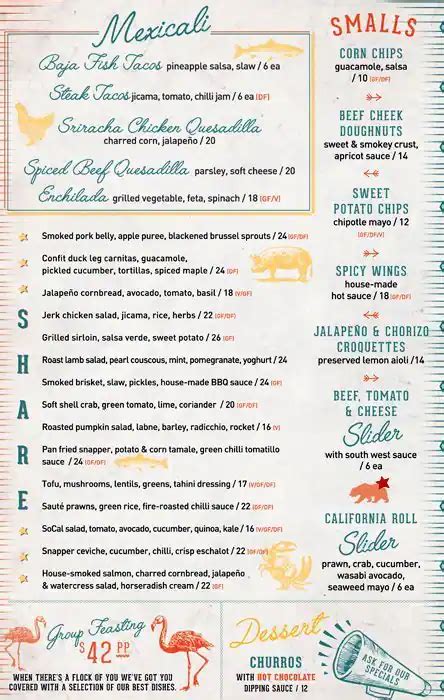 Mexicali
Baja Fish Tacos pineapple salsa, slaw / 6 ea
Steak Tacos jicama, tomato, chilli jam / 6 ea (DF)
Sriracha Chicken Quesadilla
charred corn, jalapeño / 20
Spiced Beef Quesadilla parsley, soft cheese / 20
Enchilada grilled vegetable, feta, spinach / 18 (GF/V)
SHARE
Smoked pork belly, apple puree, blackened brussel sprouts / 24 (GF/DF)
Confit duck leg carnitas, guacamole,
pickled cucumber, tortillas, spiced maple / 24 (DF)
Jalapeño cornbread, avocado, tomato, basil / 18 (V/GF)
Jerk chicken salad, jicama, rice, herbs / 22 (GF/DF)
Grilled sirloin, salsa verde, sweet potato / 26 (GF)
Roast lamb salad, pearl couscous, mint, pomegranate, yoghurt / 24
Smoked brisket, slaw, pickles, house-made BBQ sauce / 24 (GF)
Soft shell crab, green tomato, lime, coriander / 20 (GF/DF)
Roasted pumpkin salad, labne, barley, radicchio, rocket / 16 (V)
Pan fried snapper, potato & corn tamale, green chilli tomatillo
sauce / 24 (GF/DF)
Tofu, mushrooms, lentils, greens, tahini dressing / 17 (V/GF/DF)
Sauté prawns, green rice, fire-roasted chilli sauce / 22 (GF/DF)
SoCal salad, tomato, avocado, cucumber, quinoa, kale / 16 (V/GF/DF)
Snapper ceviche, cucumber, chilli, crisp eschalot / 22 (GF/DF)
House-smoked salmon, charred cornbread, jalapeño
& watercress salad, horseradish cream / 22 (GF)
SMALLS
CORN CHIPS
guacamole, salsa
/ 10 (GF/DF)
BEEF CHEEK
DOUGHNUTS
sweet & smokey crust,
apricot sauce / 14
SWEET
POTATO CHIPS
chipotle mayo / 12
(GF/DF/V)
SPICY WINGS
house-made
hot sauce / 18 (GF/DF)
JALAPEÑO & CHORIZO
CROQUETTES
preserved lemon aioli / 14
BEEF, TOMATO
& CHEESE
Slider
with south west sauce
/ 6 ea
CALIFORNIA ROLL
Slider
prawn, crab, cucumber,
wasabi avocado,
seaweed mayo / 6 ea
Group Feasting
$42 PP
WHEN THERE'S A FLOCK OF YOU WE'VE GOT YOU
COVERED WITH A SELECTION OF OUR BEST DISHES.
Dessert
CHURROS
WITH HOT CHOCOLATE
DIPPING SAUCE / 12
ASK FOR OUR
SPECIALS